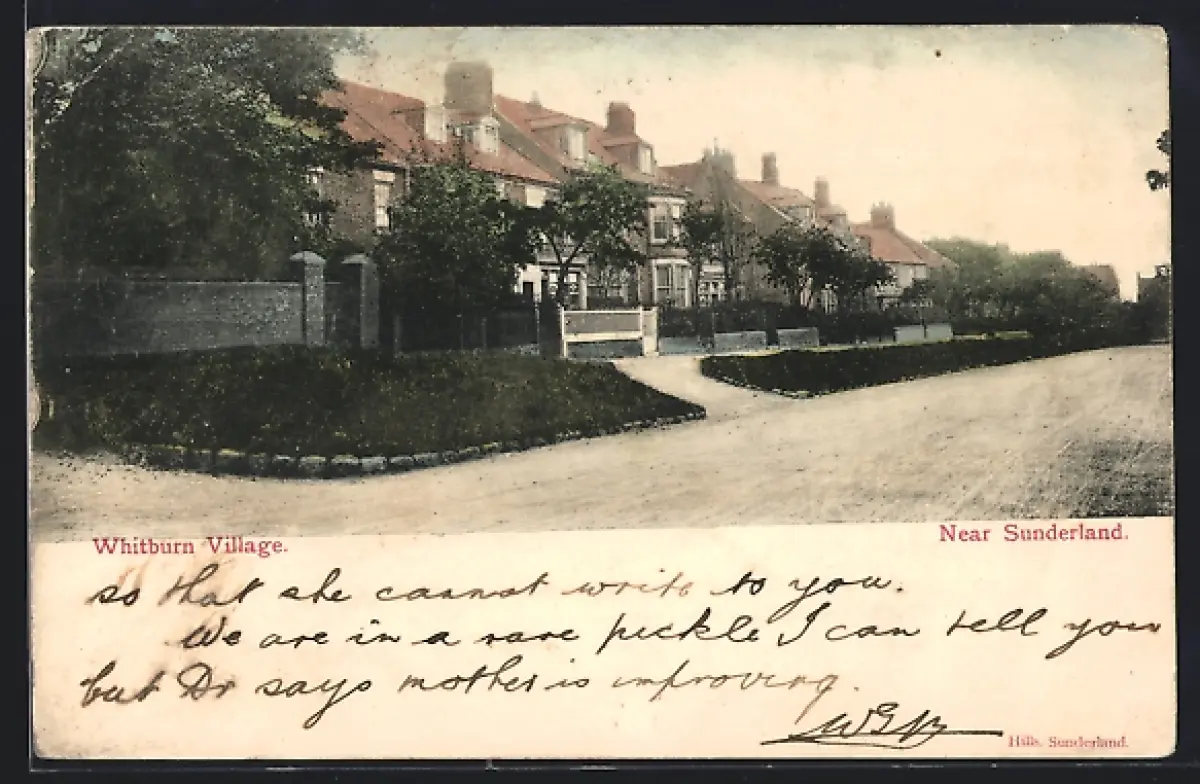 Whitburn Village.
Near Sunderland.
so that she cannot write to you.
We are in a rare pickle I can tell you
but Dr says mother is improving.
Hills. Sunderland.